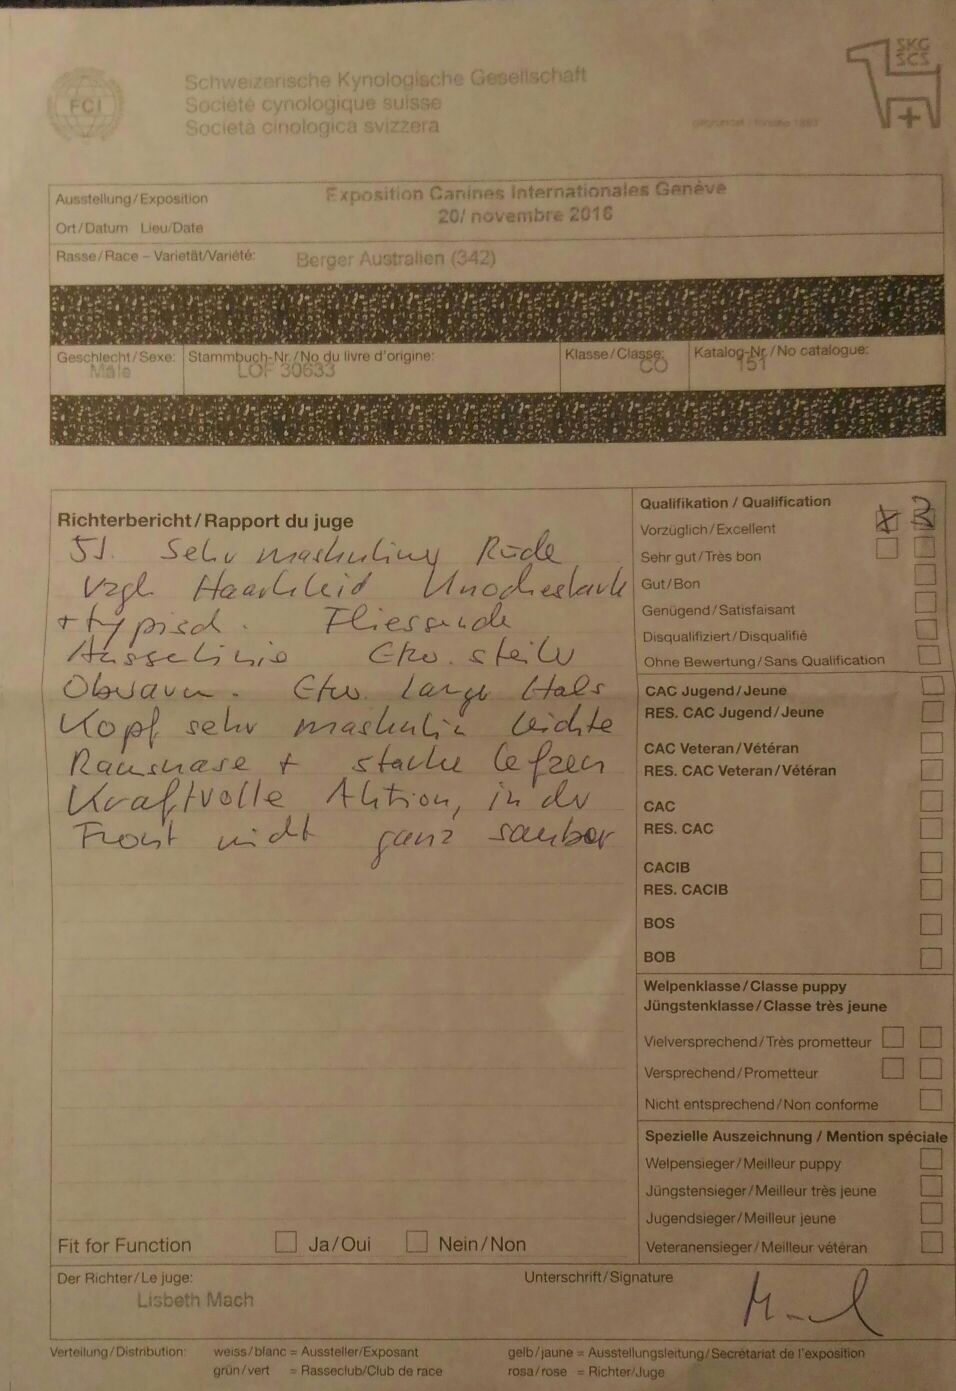 FCI
Schweizerische Kynologische Gesellschaft
Société cynologique suisse
Società cinologica svizzera
SKG
SCS
Ausstellung/Exposition
Exposition Canines Internationales Genève
20/ novembre 2016
Ort/Datum Lieu/Date
Rasse/Race – Varietät/Variété: Berger Australien (342)
Geschlecht/Sexe: Stammbuch-Nr./No du livre d'origine: Klasse/Classe: Katalog-Nr./No catalogue:
Male LOF 30633 CO 151
Richterbericht/Rapport du juge
5J. Sehr maskuliner Rüde
vzgl. Haarkleid Knochestark
+ typisch. Fliessende
Etw. steiler
Oberarm. Etw. langer Hals
Kopf sehr maskulin leichte
Ramsnase + starke Lefzen
Kraftvolle Aktion, in der
Front nicht ganz sauber
Fit for Function Ja/Oui Nein/Non
Qualifikation / Qualification
Vorzüglich/Excellent
Sehr gut/Très bon
Gut/Bon
Genügend/Satisfaisant
Disqualifiziert/Disqualifié
Ohne Bewertung/Sans Qualification
CAC Jugend/Jeune
RES. CAC Jugend/Jeune
CAC Veteran/Vétéran
RES. CAC Veteran/Vétéran
CAC
RES. CAC
CACIB
RES. CACIB
BOS
BOB
Welpenklasse/Classe puppy
Jüngstenklasse/Classe très jeune
Vielversprechend/Très prometteur
Versprechend/Prometteur
Nicht entsprechend/Non conforme
Spezielle Auszeichnung / Mention spéciale
Welpensieger/Meilleur puppy
Jüngstensieger/Meilleur très jeune
Jugendsieger/Meilleur jeune
Veteranensieger/Meilleur vétéran
Der Richter/Le juge: Unterschrift/Signature
Lisbeth Mach
Verteilung/Distribution: weiss/blanc = Aussteller/Exposant gelb/jaune = Ausstellungsleitung/Secrétariat de l'exposition
grün/vert = Rasseclub/Club de race rosa/rose = Richter/Juge